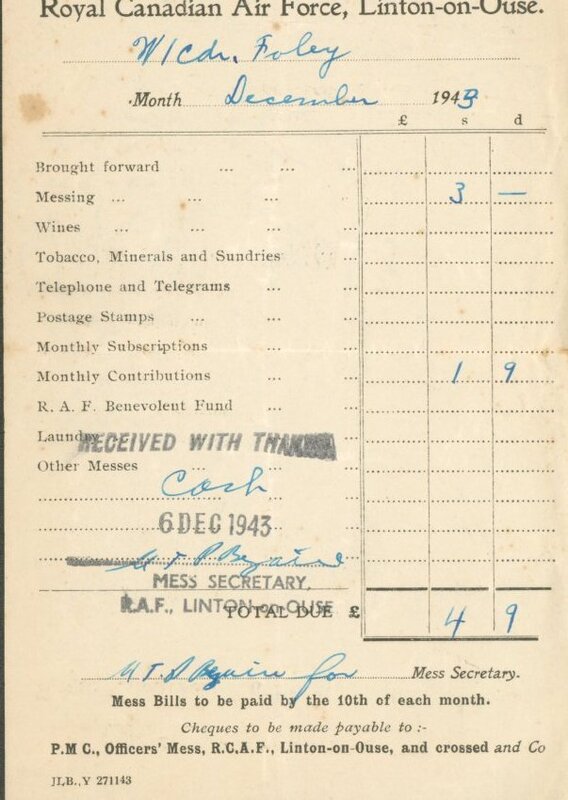 Royal Canadian Air Force, Linton-on-Ouse.
W/Cdr. Foley
Month December 1943
£ s d
Brought forward ... ... ...
Messing ... ... ... ... 3 —
Wines ... ... ... ...
Tobacco, Minerals and Sundries ...
Telephone and Telegrams ... ...
Postage Stamps ... ... ...
Monthly Subscriptions ... ...
Monthly Contributions ... ... 1 9
R. A. F. Benevolent Fund ... ...
Laundry
RECEIVED WITH THANKS
Other Messes ... ... ...
Cash
6 DEC 1943
MESS SECRETARY,
R.A.F., LINTON-on-OUSE
TOTAL DUE £ 4 9
for Mess Secretary.
Mess Bills to be paid by the 10th of each month.
Cheques to be made payable to :-
P.M C., Officers' Mess, R.C.A.F., Linton-on-Ouse, and crossed and Co
JLB.,Y 271143